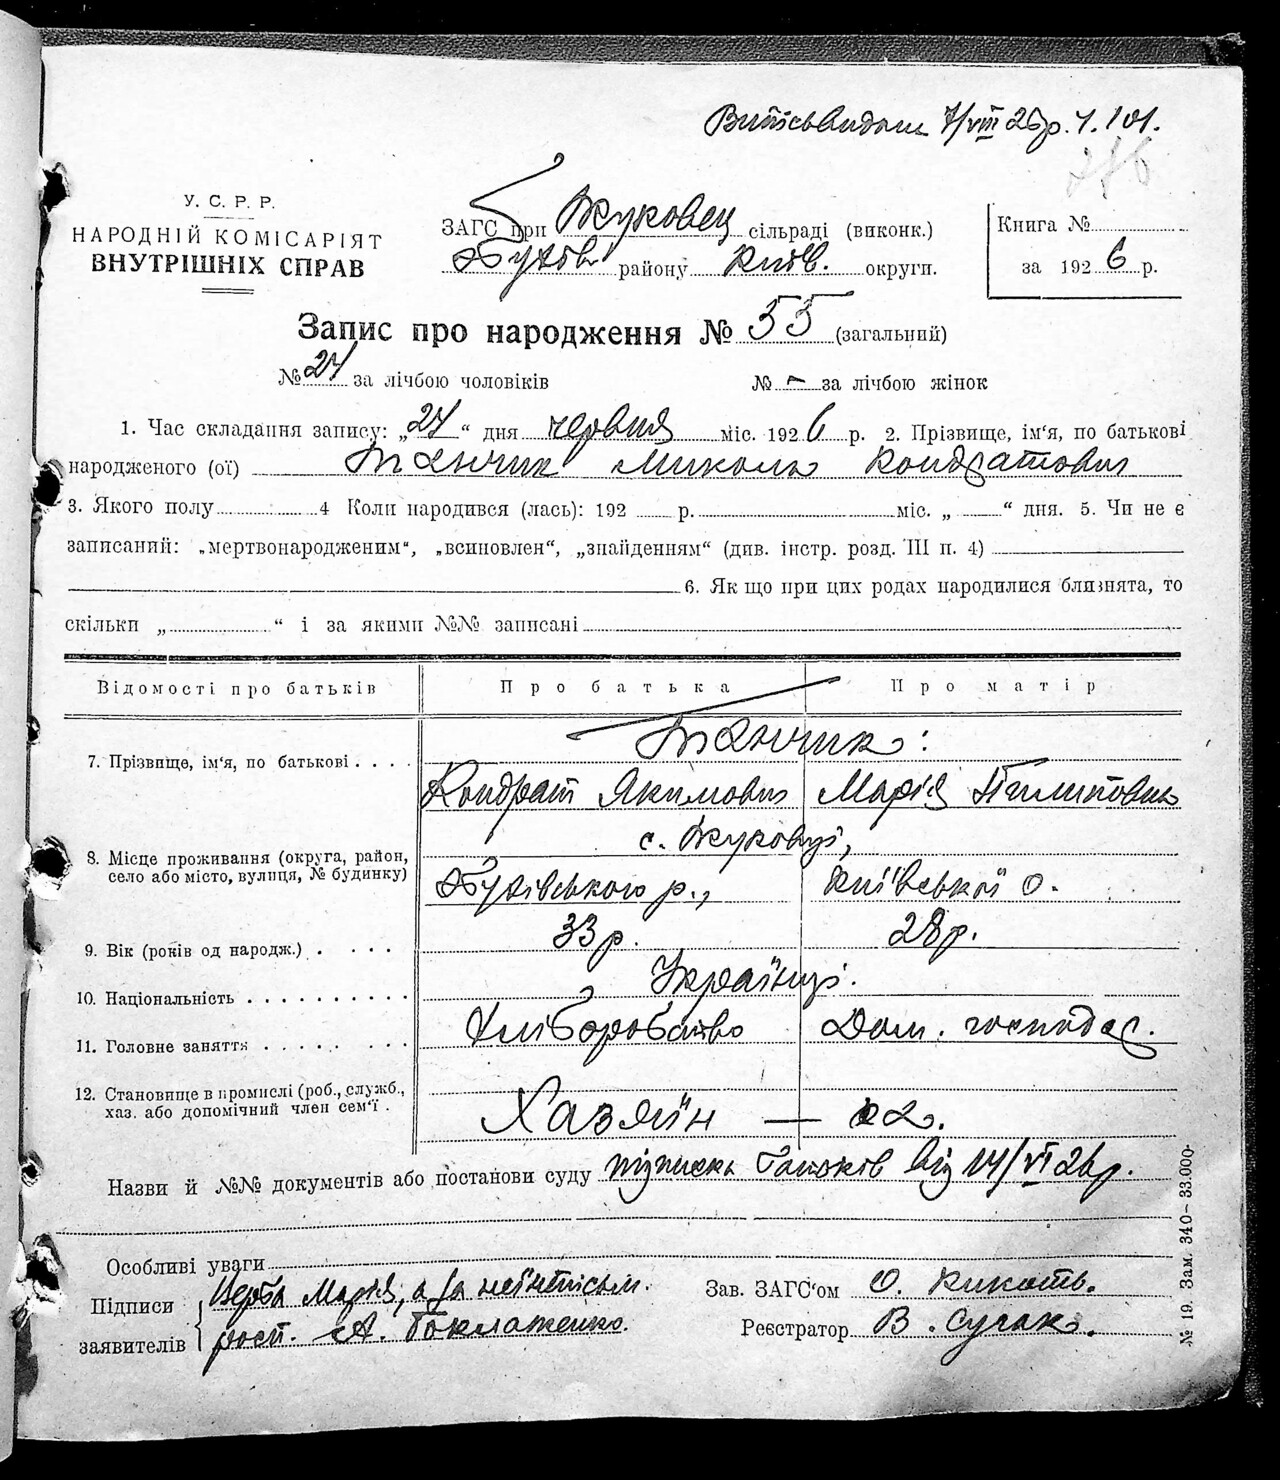 7/VIII 26р. ч. 101.
286
У. С. Р. Р.
НАРОДНІЙ КОМІСАРІЯТ
ВНУТРІШНІХ СПРАВ
ЗАГС при Жуковец сільраді (виконк.)
Обухів району Київ. округи.
Книга №
за 1926 р.
Запис про народження № 55 (загальний)
№ 27 за лічбою чоловіків № – за лічбою жінок
1. Час складання запису: „27“ дня червня міс. 1926 р. 2. Прізвище, ім'я, по батькові
народженого (ої) Танчик Микола Кондратович
3. Якого полу 4 Коли народився (лась): 192 р. міс. „ “ дня. 5. Чи не є
записаний: „мертвонародженим“, „всиновлен“, „знайденням“ (див. інстр. розд. III п. 4)
6. Як що при цих родах народилися близнята, то
скільки „ “ і за якими №№ записані
Відомості про батьків Про батька Про матір
Танчик:
7. Прізвище, ім'я, по батькові . . . .
Кондрат Якимович Марія Пилиповна
с. Жуковці,
8. Місце проживання (округа, район,
село або місто, вулиця, № будинку)
Обухівського р., Київської о.
9. Вік (років од народж.) . . . . 33 р. 28 р.
10. Національність . . . . . . . . . . Українці.
11. Головне заняття . . . . . . . . Хліборобство Дом. господар.
12. Становище в промислі (роб., служб.,
хаз. або допомічний член сем'ї .
Хазяїн —
Назви й №№ документів або постанови суду підписка батьків від 14/VI 26р.
Особливі уваги
Підписи
заявителів
Верба Марія, а за неї
рост. А.
Зав. ЗАГС'ом О.
Реєстратор В.
№ 19. Зам. 340–33.000